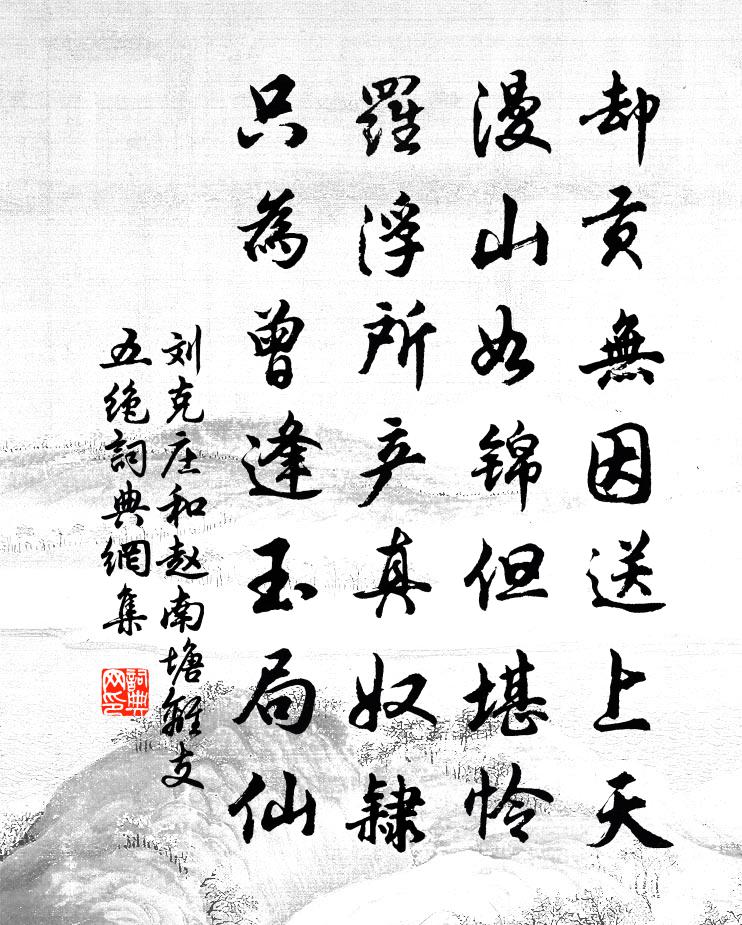 却貢無因送上天
漫山如錦但堪怜
羅浮所产真奴隸
只為曾逢玉局仙
刘克庄和赵南塘離支
五绝詞典網集
詞典网印